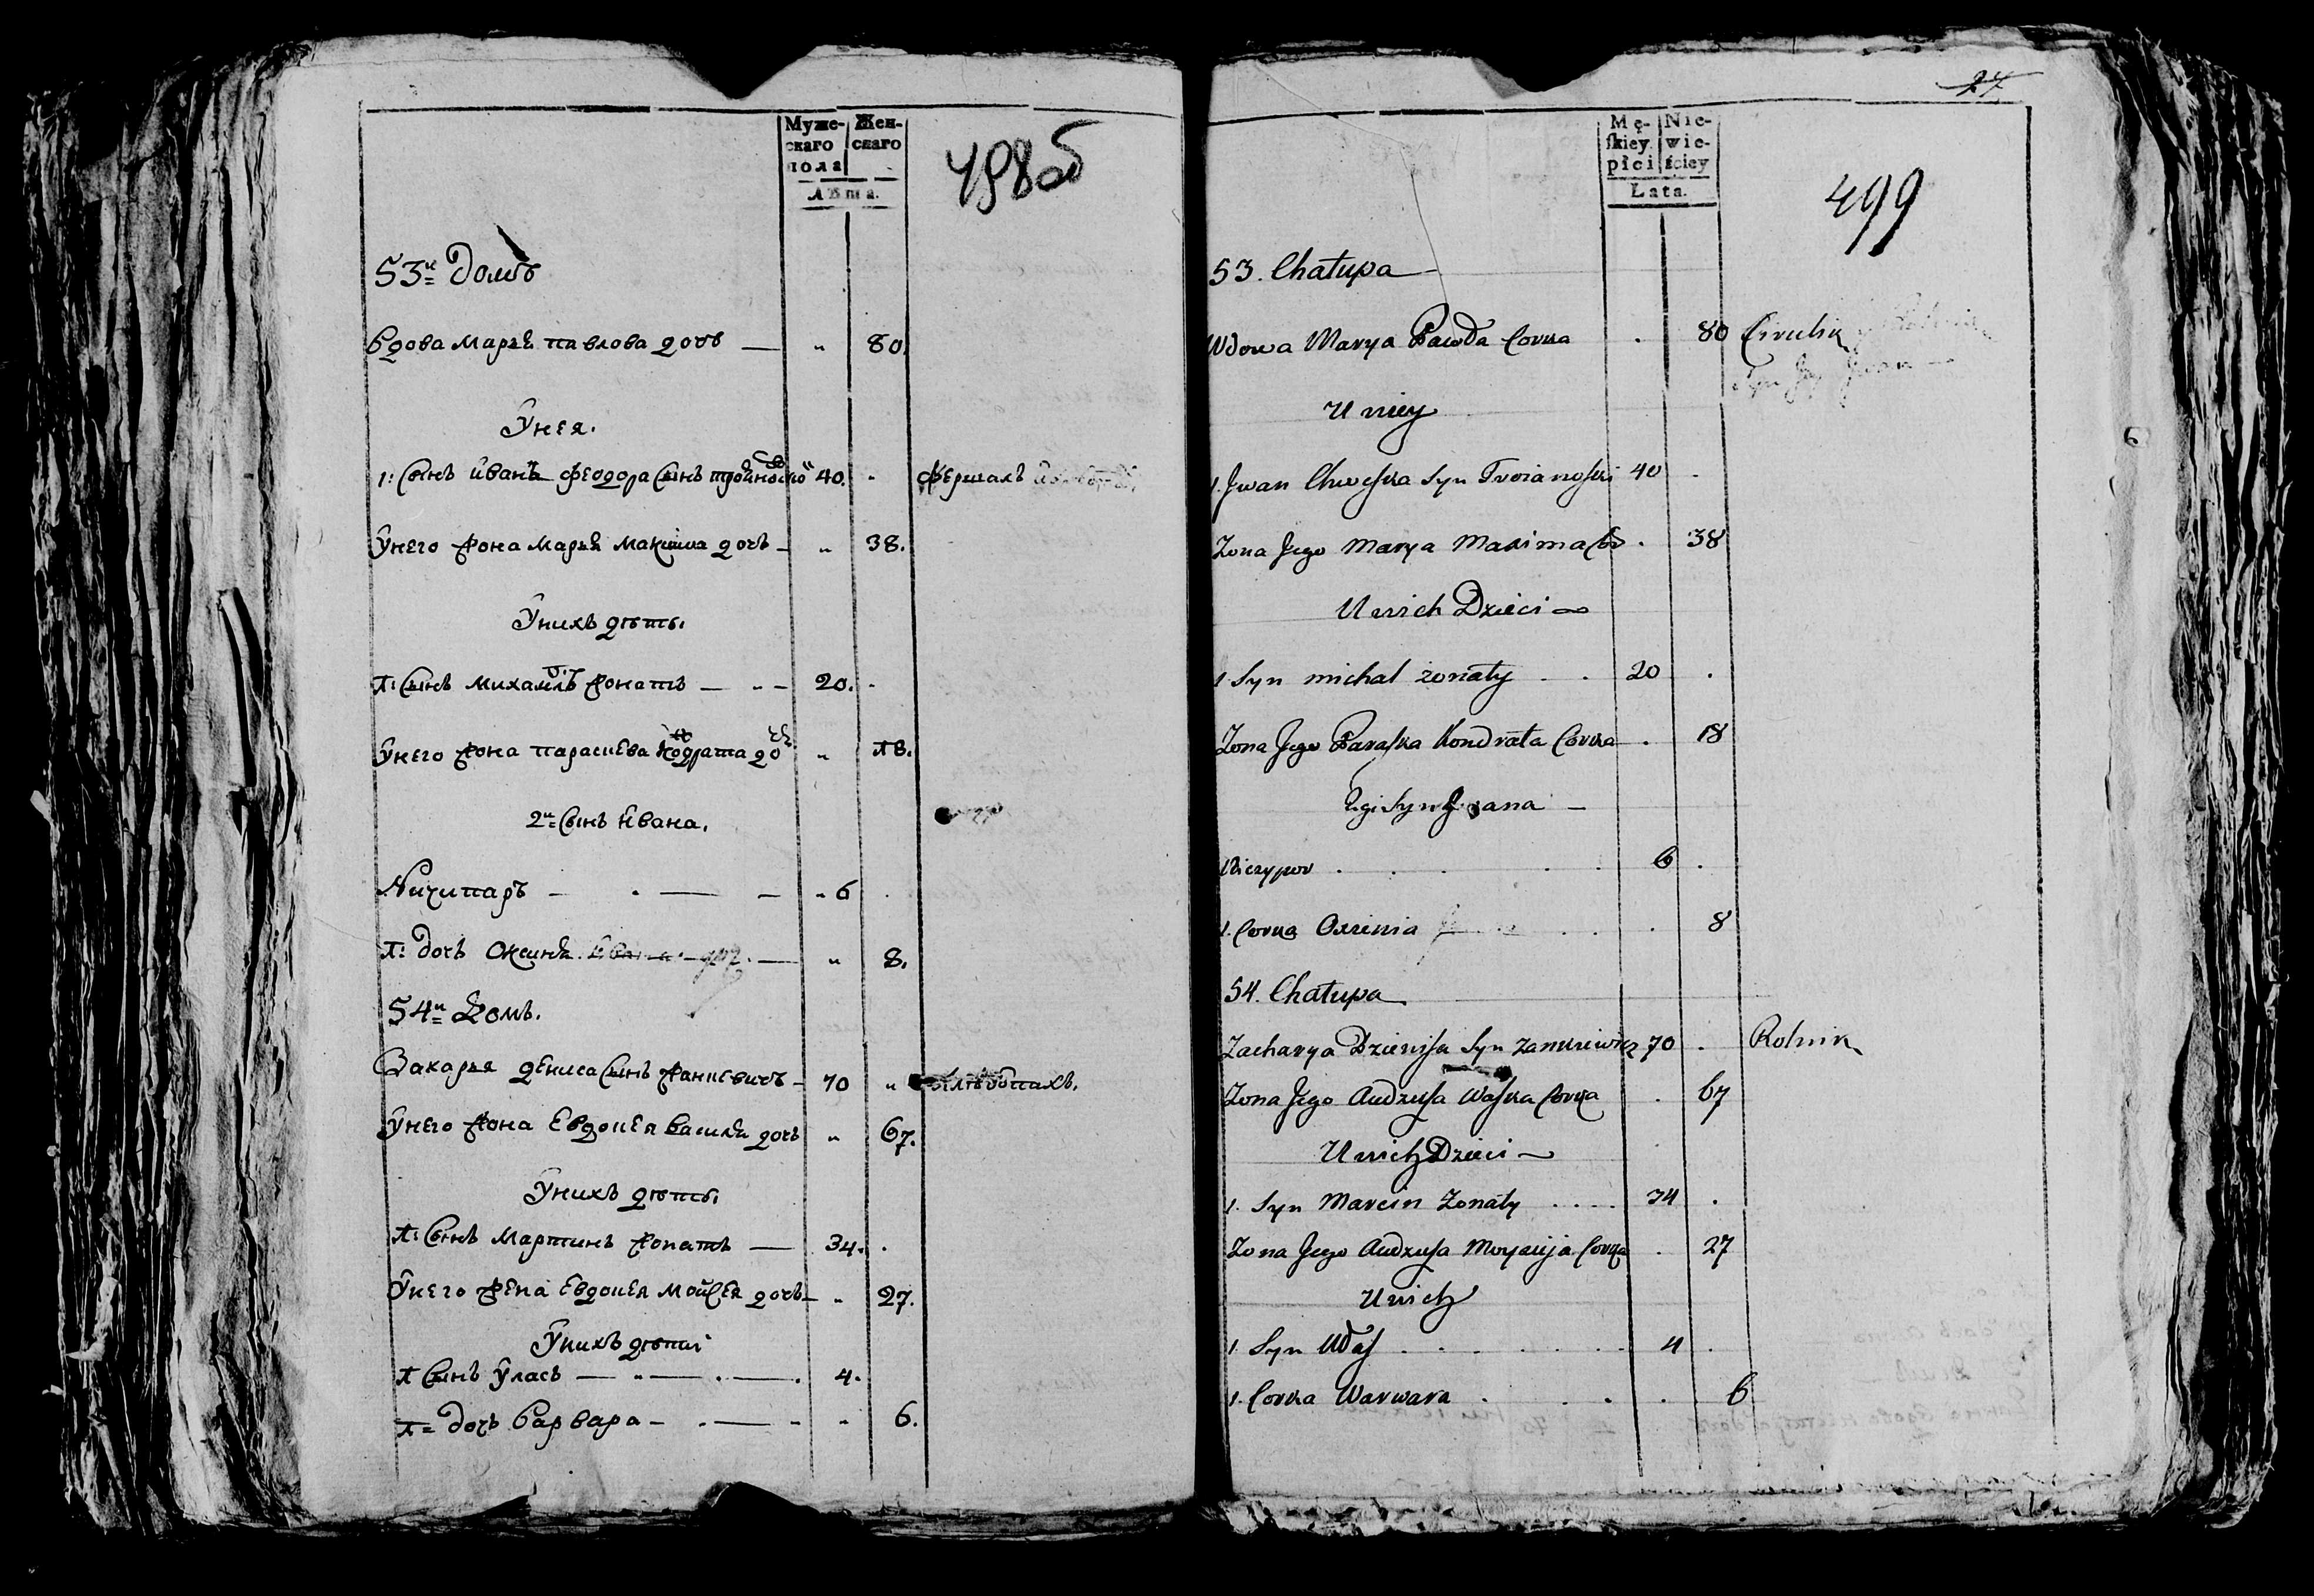 Муже-
скаго
пола
Жен-
скаго
Лѣта.
498об
53й Домъ
Вдова Марья павлова дочь — „ 80.
Унея.
1: Сынъ Иванъ Феодора Сынъ 40.
фершалъ
Унего жона Марья Максима дочь — „ 38.
Унихъ дѣти.
1: Сынъ Михаилъ жонатъ — 20.
Унего жона парасцева Кодрата доч „ 18.
2й Сынъ Ивана.
Ничипаръ — 6
1: дочь Оксиня Ивана „ 8.
54й Домъ.
Захарья дениса Сынъ жанкевичъ — 70 „
хлѣбопахъ.
Унего жона Евдокея василя дочь „ 67.
Унихъ дѣти.
1: Сынъ Мартинъ жонатъ — 34.
Унего жена Евдокея Мойсея дочь — „ 27.
Унихъ дѣти
1 Сынъ Уласъ — 4.
1 дочь Варвара — „ 6.
27
Mę-
ſkiey
płci
Nie-
wie-
ściey
Lata.
499
53. Chałupa
Wdowa Marya Pawła Corka . 80 Cirulik
Syn Jey Jwan
U niey
1. Jwan Chweſka Syn Troianoſki 40
Zona Jego Marya Maxima . 38
U nich Dzieci
1 Syn michal żonaty . . 20 .
Zona Jego Paraſka Kondrata Corka . 18
2gi Syn Jwana
Niczypor . . . . 6 .
1. Corka Oxenia . . . 8
54. Chałupa
Zacharya Dzieniſa Syn Zankiewicz 70 . Rolnik
Zona Jego Audzuſa Waſka Corka . 67
U nich Dzieci
1. Syn Marcin Zonaty . . . . 34 .
Zona Jego Audzuſa Moyzieja Corka . 27
U nich
1. Syn Ułaſ . . . . 4 .
1. Corka Warwara . . . 6